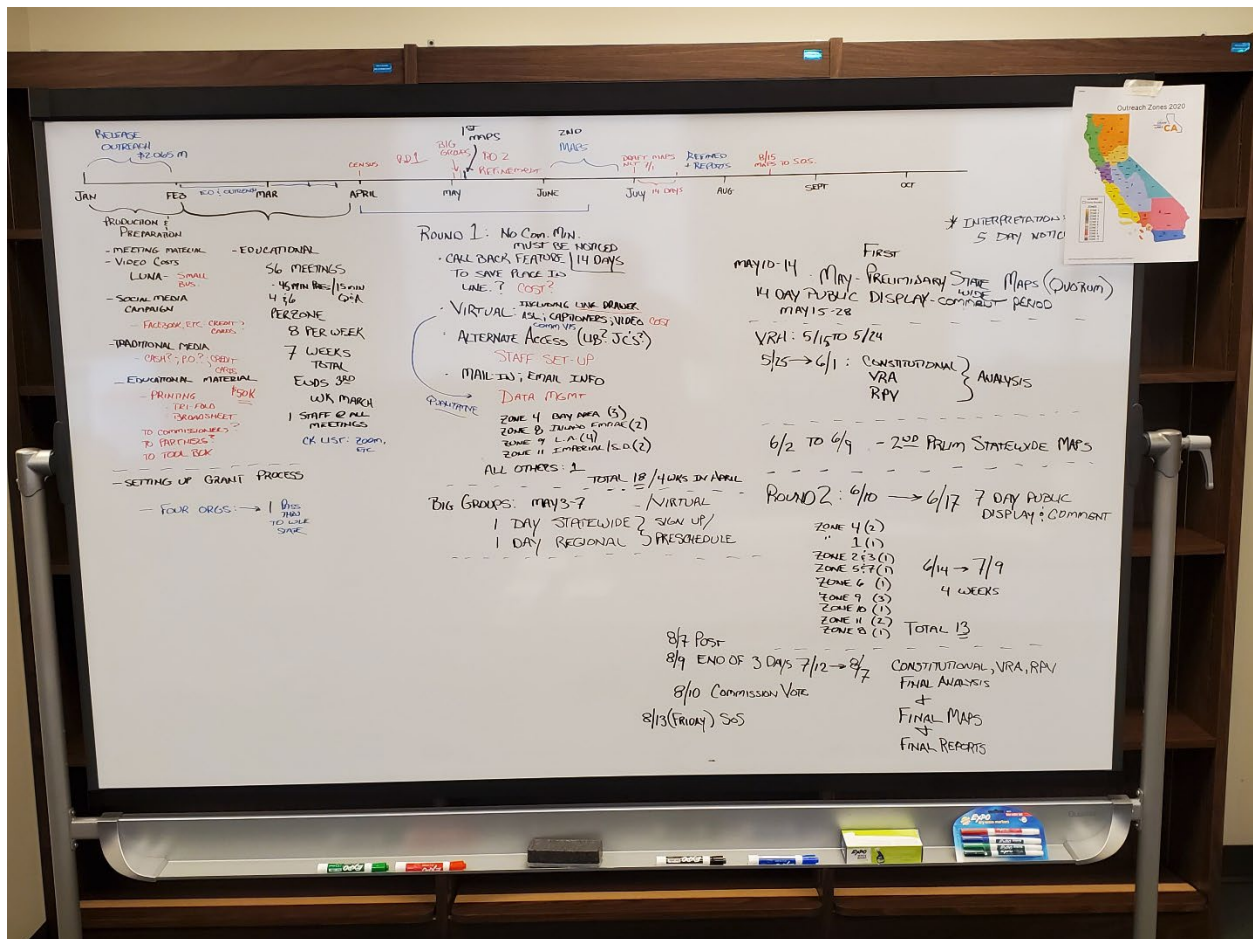 RELEASE
OUTREACH
$2.065 M
JAN
FEB
EDU & OUTREACH
MAR
CENSUS
APRIL
RD1
BIG
GROUPS
1ST
MAPS
RD 2
REFINEMENT
MAY
2ND
MAPS
JUNE
DRAFT MAPS
7/1
JULY
14 DAYS
REFINED
+ REPORTS
AUG
8/15
MAPS TO S.O.S.
SEPT
OCT
PRODUCTION &
PREPARATION
- MEETING MATERIAL
- VIDEO COSTS
LUNA - SMALL
BUS.
- SOCIAL MEDIA
CAMPAIGN
- FACEBOOK, ETC CREDIT?
CARDS
- TRADITIONAL MEDIA
- CASH?; P.O.?; CREDIT
CARDS
- EDUCATIONAL MATERIAL
- PRINTING $50K
- TRI-FOLD
BROADSHEET
TO COMMISSIONERS?
TO PARTNERS?
TO TOOL BOX
- SETTING UP GRANT PROCESS
- FOUR ORGS: → 1
TO
STATE
- EDUCATIONAL
56 MEETINGS
- 45 MIN PRES/15 MIN
Q&A
4 & 6
PER ZONE
8 PER WEEK
7 WEEKS
TOTAL
ENDS 3RD
WK MARCH
1 STAFF @ ALL
MEETINGS
CK LIST: ZOOM,
ETC
ROUND 1: NO COM. MIN.
MUST BE NOTICED
14 DAYS
· CALL BACK FEATURE
TO SAVE PLACE IN
LINE? COST?
· VIRTUAL: INCLUDING LINE DRAWER
ASL; CAPTIONERS; VIDEO COST
COMM VIS
· ALTERNATE ACCESS (LIB? JC'S?)
STAFF SET-UP
· MAIL IN; EMAIL INFO
QUALITATIVE
DATA MGMT
ZONE 4 BAY AREA (3)
ZONE 8 INLAND EMPIRE (2)
ZONE 9 L.A. (4)
ZONE 11 IMPERIAL/S.D. (2)
ALL OTHERS: 1
TOTAL 18 / 4 WKS IN APRIL
BIG GROUPS: MAY 3-7 /VIRTUAL
1 DAY STATEWIDE } SIGN UP/
1 DAY REGIONAL } PRESCHEDULE
* INTERPRETATION:
5 DAY NOTIC
FIRST
MAY 10-14 · MAY - PRELIMINARY STATE MAPS (QUORUM)
WIDE
14 DAY PUBLIC DISPLAY - COMMENT PERIOD
MAY 15-28
VRA: 5/15 TO 5/24
5/25 → 6/1: CONSTITUTIONAL
VRA
RPV
} ANALYSIS
6/2 TO 6/9 - 2ND PRLIM STATEWIDE MAPS
ROUND 2: 6/10 → 6/17 7 DAY PUBLIC
DISPLAY & COMMENT
ZONE 4 (2)
" 1 (1)
ZONE 2 & 3 (1)
ZONE 5 & 7 (1)
ZONE 6 (1)
ZONE 9 (3)
ZONE 10 (1)
ZONE 11 (2)
ZONE 8 (1)
6/14 → 7/9
4 WEEKS
TOTAL 13
8/7 POST
8/9 END OF 3 DAYS
7/12 → 8/7 CONSTITUTIONAL, VRA, RPV
FINAL ANALYSIS
+
FINAL MAPS
+
FINAL REPORTS
8/10 COMMISSION VOTE
8/13 (FRIDAY) SOS
Outreach Zones 2020
CA
EXPO
EXPO